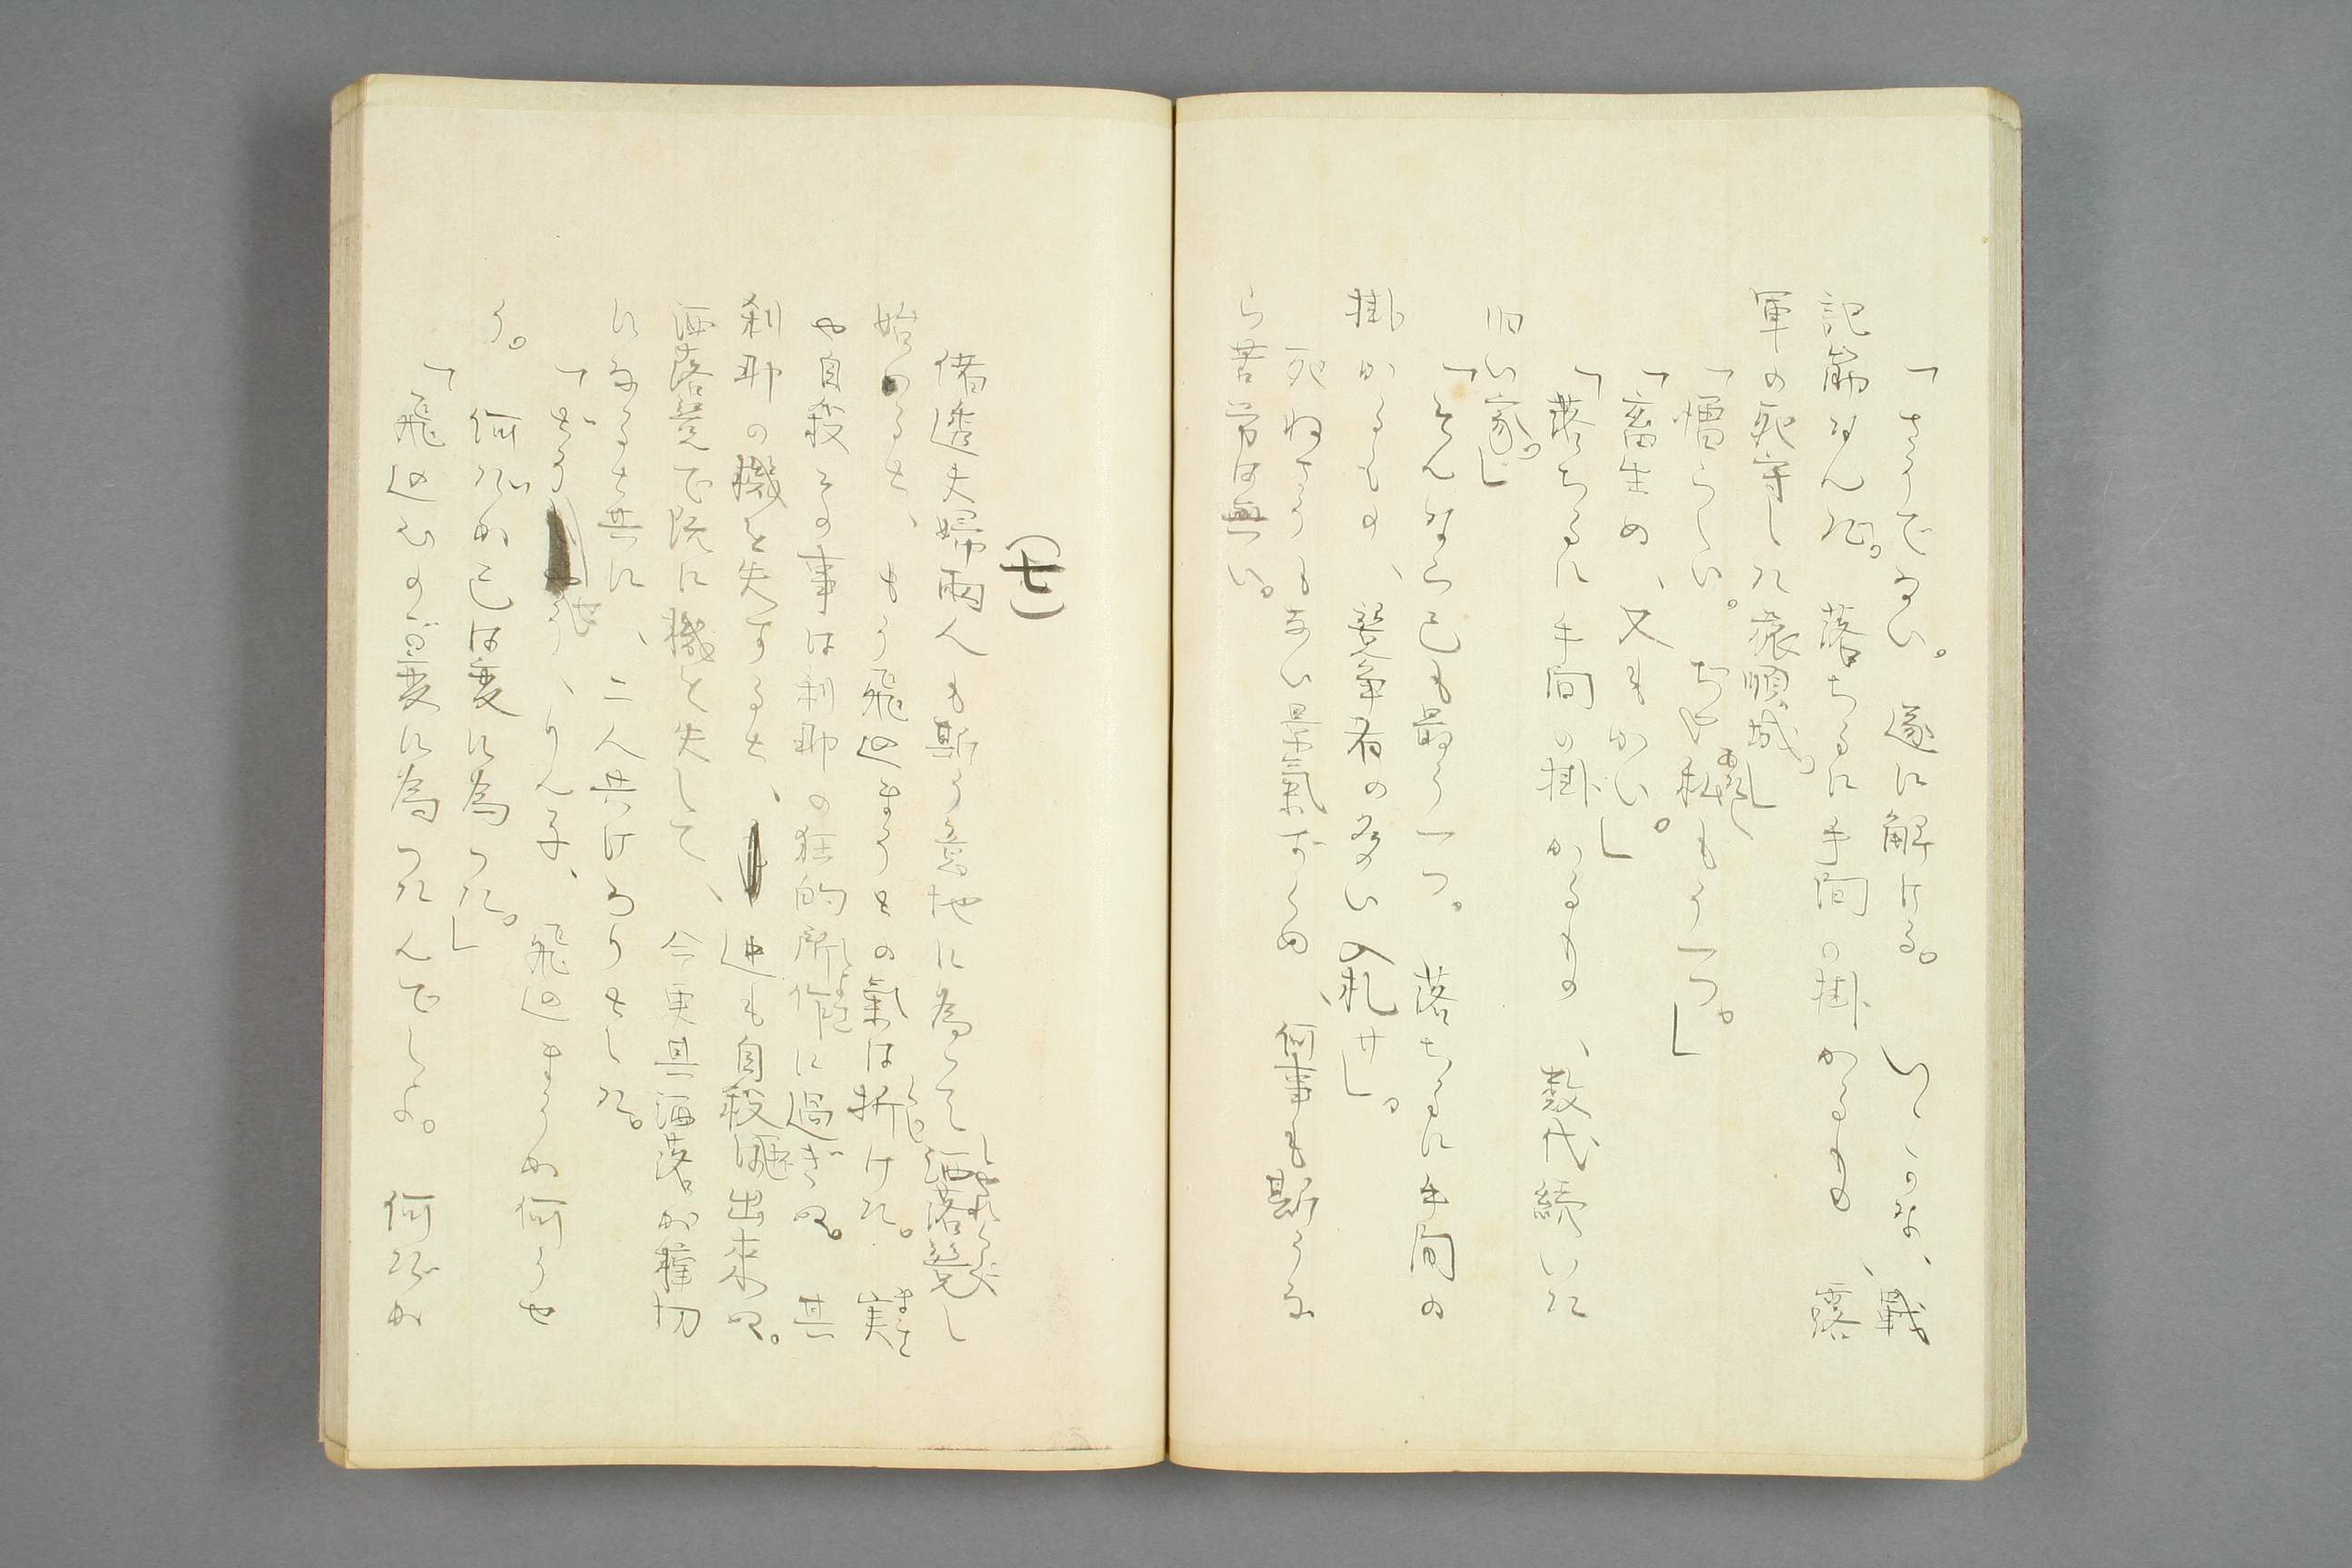 「さうでない。遂に解ける。いゝかな、戰
記節なんだ。落ちるに手間の掛かるもの、露
軍の死守した旅順城。」
「憎らしい。ぢや私もう一つ。」
「畜生め、又もかい。」
「落ちるに手間の掛かるもの、数代続いた
旧い家。」
「そんなら己も最う一つ。落ちるに手間の
掛かるもの、競争者の多い入札サ。」
死ねさうもない景氣だ。何事も斯うな
ら苦労は無い。
(七)
偖透夫婦両人も斯う意地に為つて洒落競し
始めると、もう飛込まうとの氣は折けた。実
や自殺その事は刹那の狂的所作に過ぎぬ。其
刹那の機を失すると、迚も自殺は出來ぬ。
洒落競で既に機を失して、今更其洒落が種切
になると共に、二人共げつそりした。
「どう、りん子、飛込まうか何うせ
う。何だか己は変に為つた。」
「飛込むのが変に為つたんでしよ。何だか